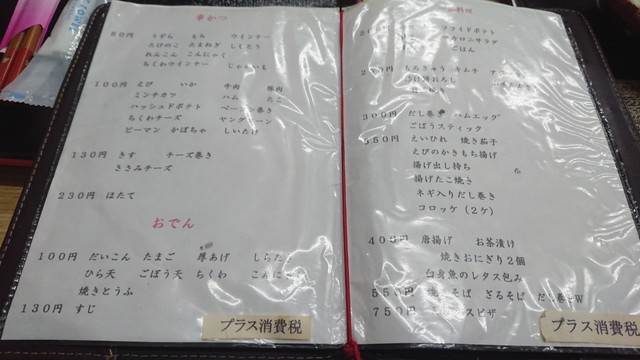 串かつ
80円 うずら もち ウインナー
たけのこ たまねぎ ししとう
れんこん こんにゃく
ちくわウインナー じゃがいも
100円 えび いか 牛肉 豚肉
ミンチカツ ハム たこ
ハッシュドポテト ベーコン巻き
ちくわチーズ ヤングコーン
ピーマン かぼちゃ しいたけ
130円 きす チーズ巻き
ささみチーズ
230円 ほたて
おでん
100円 だいこん たまご 厚あげ しらたき
ひら天 ごぼう天 ちくわ
焼きとうふ
130円 すじ
プラス消費税
料理
フライドポテト
マカロニサラダ
ごはん
キムチ
300円 だし巻き ハムエッグ
ごぼうスティック
550円 えいひれ 焼き茄子
えびのかきもち揚げ
揚げ出し持ち
揚げたこ焼き
ネギ入りだし巻き
コロッケ(2ケ)
400円 唐揚げ お茶漬け
焼きおにぎり2個
白身魚のレタス包み
550円 焼きそば ざるそば だし巻きW
750円 ピザ
プラス消費税